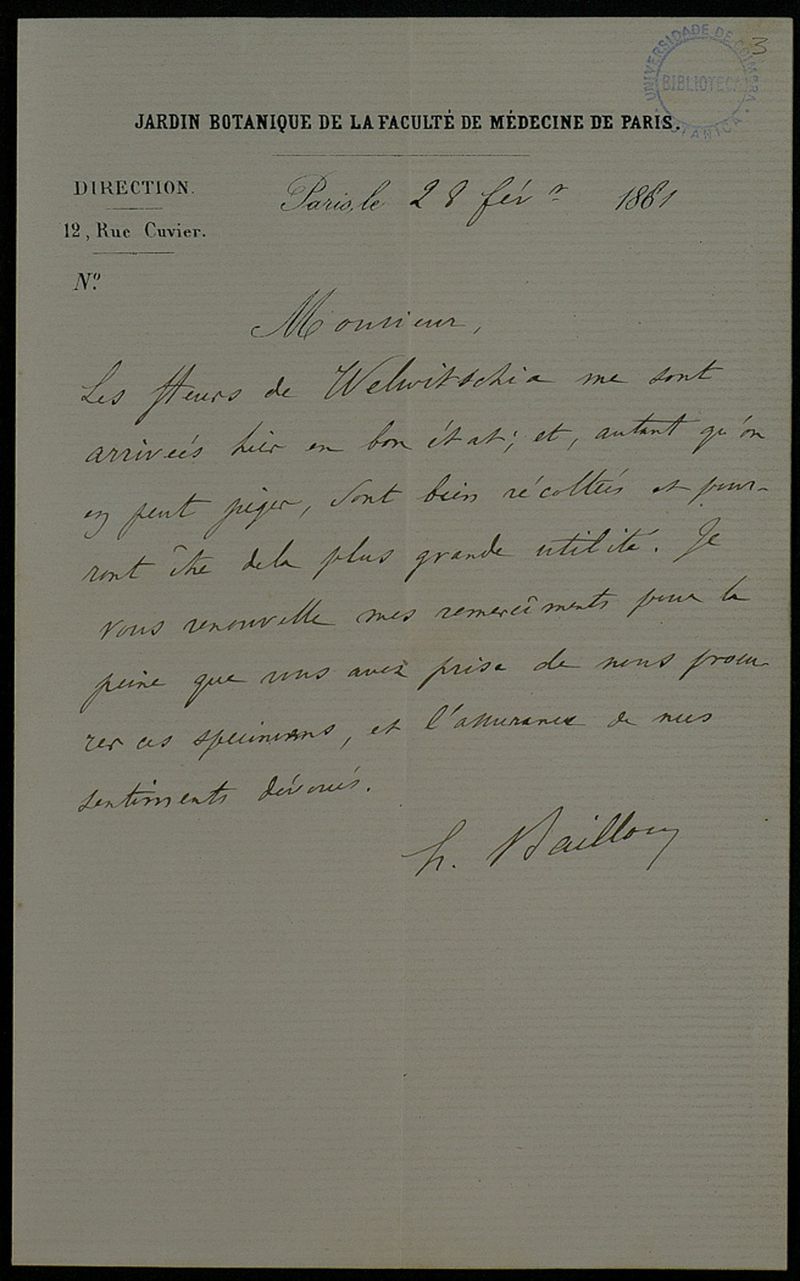 3
UNIVERSIDADE DE COIMBRA
BIBLIOTECA
BOTANICA
JARDIN BOTANIQUE DE LA FACULTÉ DE MÉDECINE DE PARIS.
DIRECTION.
Paris, le 28 fév.r 1881
12, Rue Cuvier.
N.º
Monsieur,
Les fleurs de Welwitschia me sont
arrivées hier en bon état; et, autant qu'on
en peut juger, sont bien récoltées et pour-
ront être de la plus grande utilité. Je
vous renouvelle mes remercîments pour la
peine que vous avez prise de nous procu-
rer ces spécimens, et l'assurance de mes
sentiments dévoués.
h. Baillon